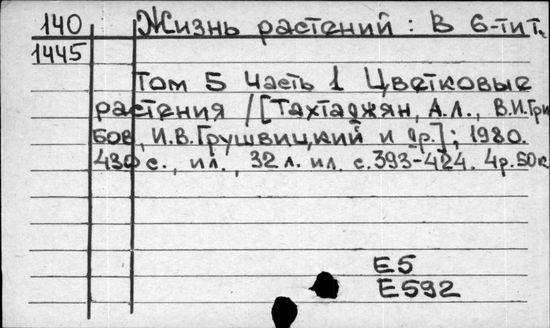 140 Жизнь растений : В 6-ти т.
1445
Том 5 Часть 1 Цветковые
растения / [Тахтаджян, А.Л., В.И.Гри
бов, И.В.Грушвицкий и др.]; 1980.
430 с., ил., 32 л. ил. с.393-424. 4р.50к
Е5
Е592